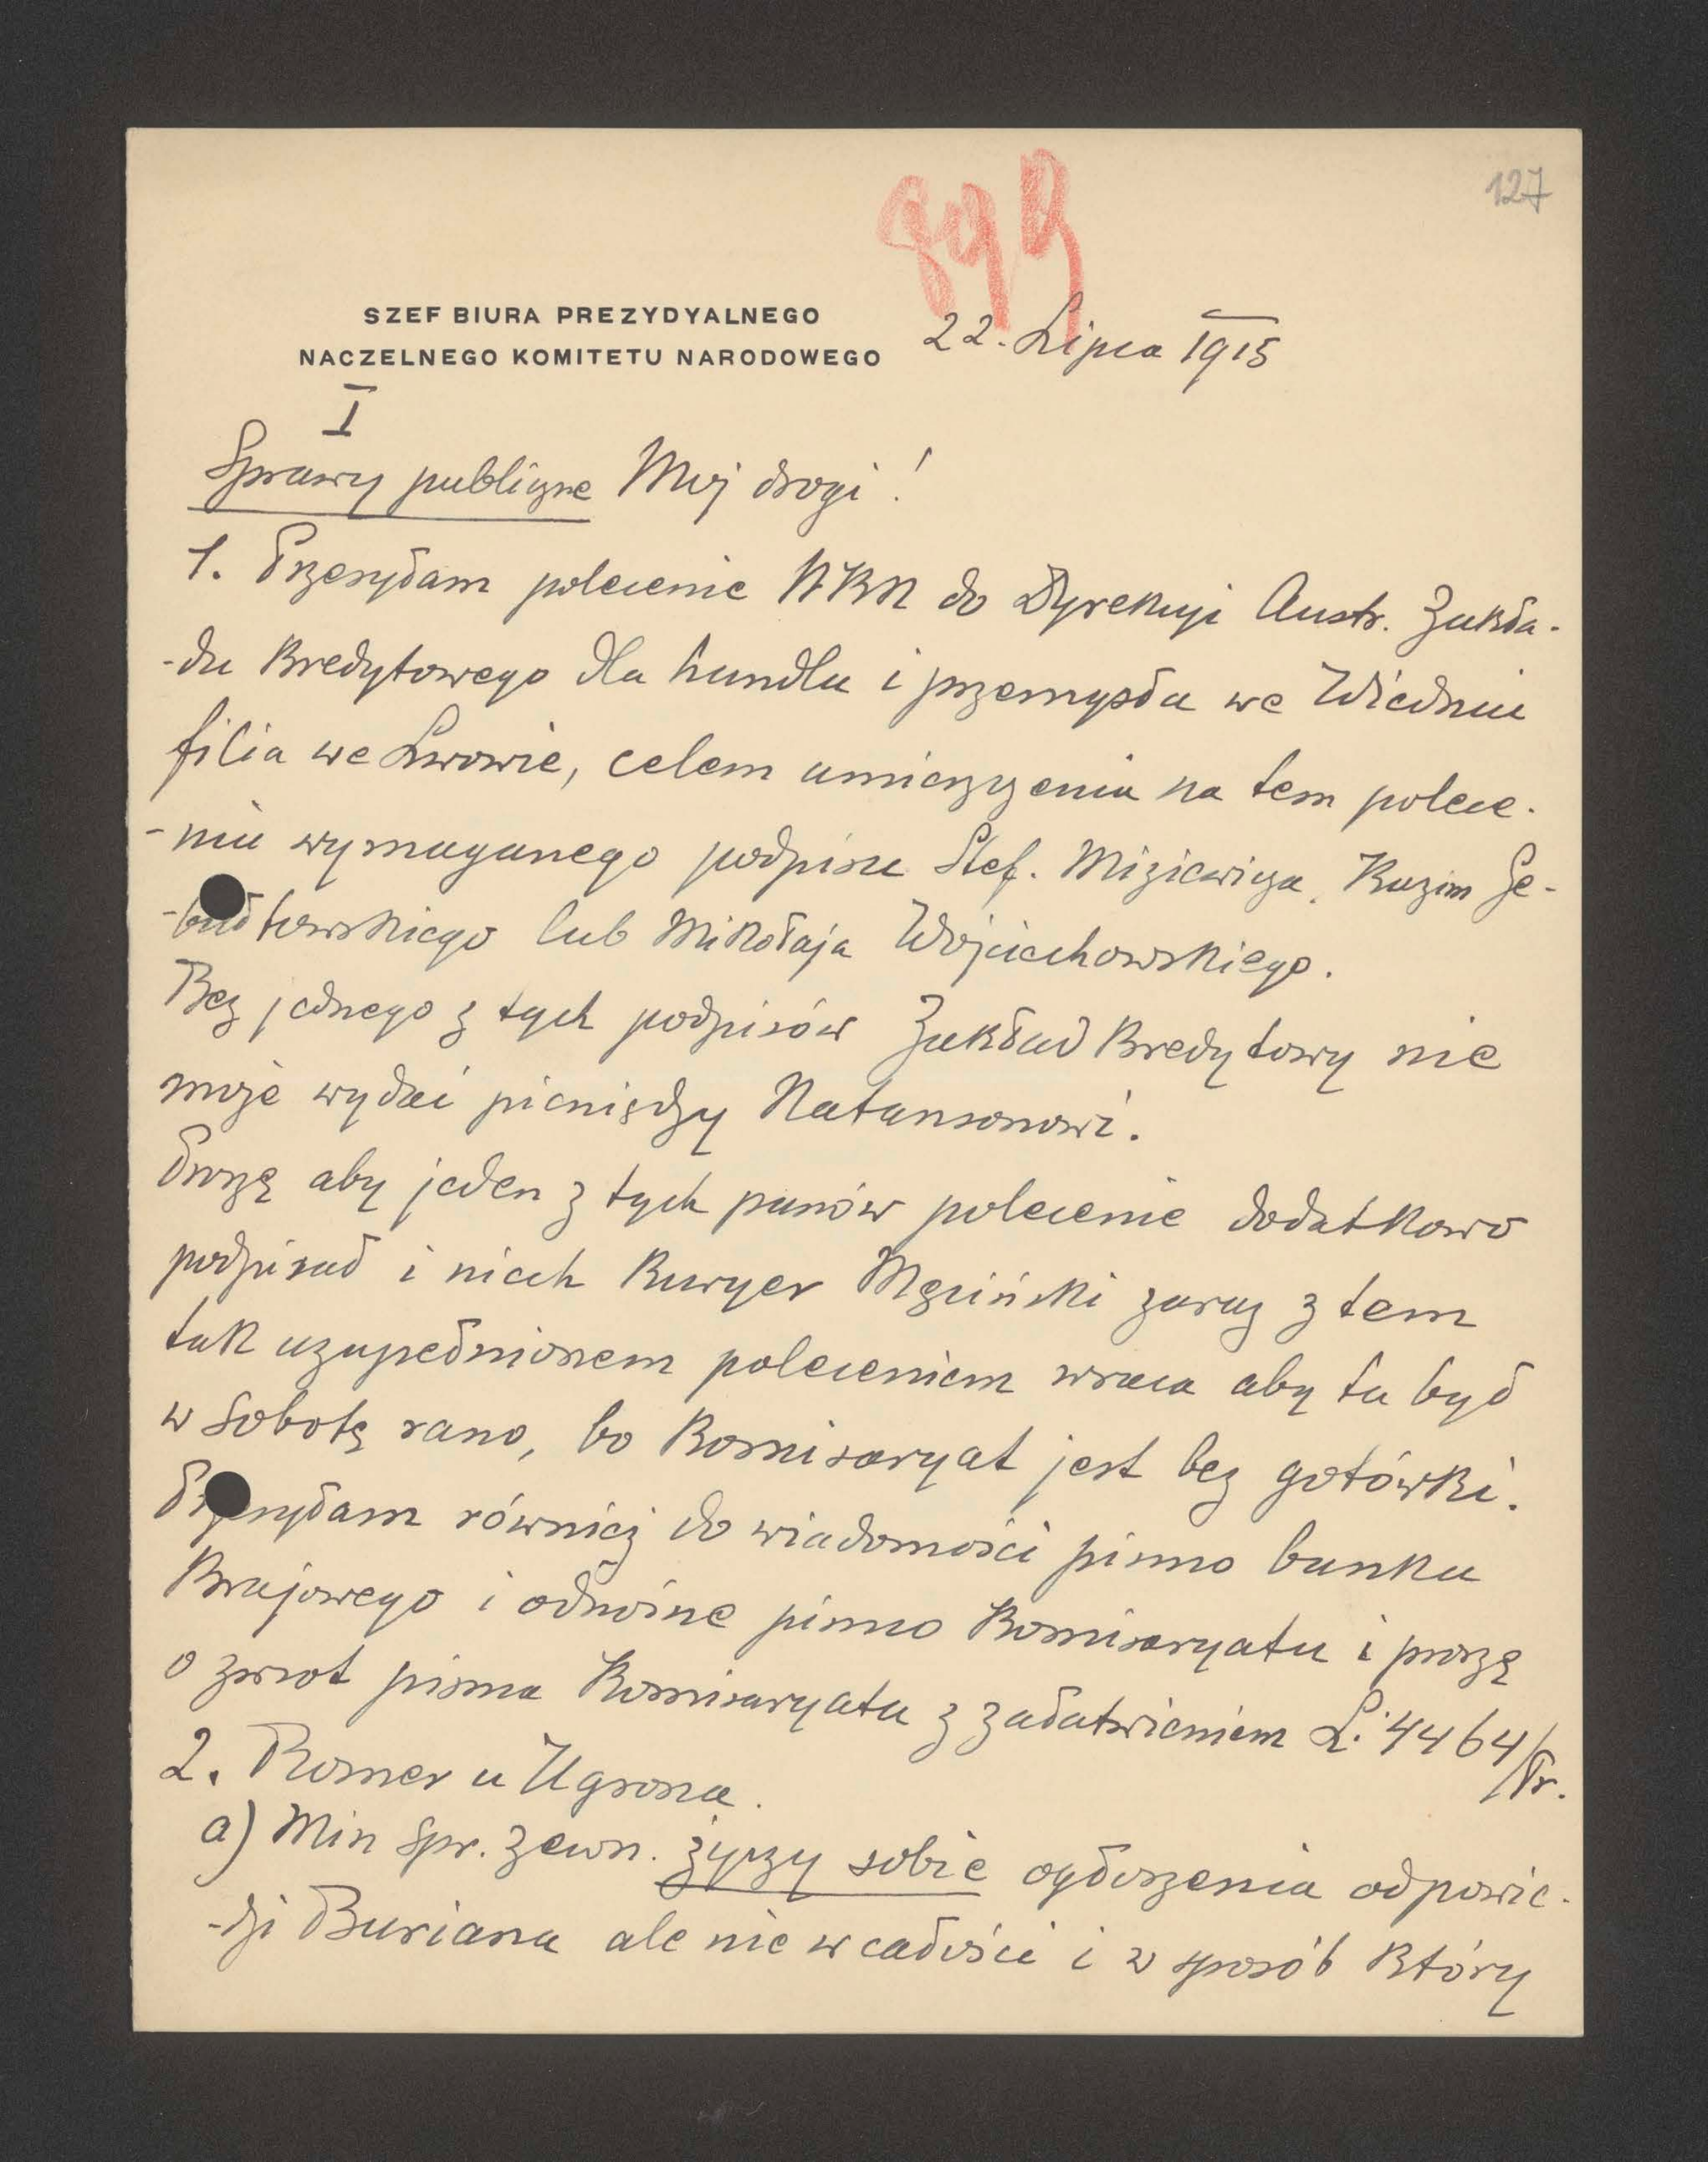 899
127
SZEF BIURA PREZYDYALNEGO
NACZELNEGO KOMITETU NARODOWEGO
22. Lipca 1915
I
Sprawy publiczne Mój drogi!
1. Przesyłam polecenie NKN do Dyrekcyi Austr. Zakła-
-du Kredytowego dla handlu i przemysłu we Wiedniu
filia we Lwowie, celem umieszczenia na tem polece-
-niu wymaganego podpisu Stef. Mizicwicza, Kazim Ge-
-bułtowskiego lub Mikołaja Wojciechowskiego.
Bez jednego z tych podpisów Zakład Kredytowy nie
może wydać pieniędzy Natansonowi.
Proszę aby jeden z tych panów polecenie dodatkowo
podpisał i niech Kuryer Męciński zaraz z tem
tak uzupełnionem poleceniem wraca aby tu był
w sobotę rano, bo Komisaryat jest bez gotówki.
Przesyłam również do wiadomości pismo banku
Krajowego i odnośne pismo Komisaryatu i proszę
o zwrot pisma Komisaryatu z załatwieniem L. 4464/Pr.
2. Romer u Ugrona.
a) Min Spr. Zewn. życzy sobie ogłoszenia odpowie-
-dzi Buriana ale nie w całości i w sposób który